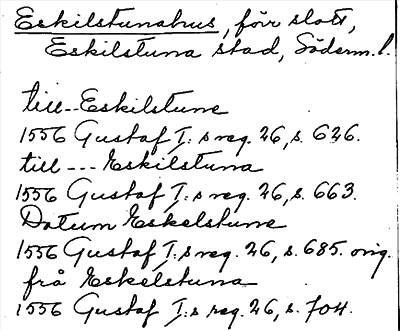 Eskilstunahus, förr slott,
Eskilstuna stad, Söderm. l.
till -- Eskilstune
1556 Gustaf I:s reg. 26, s. 626.
till --- Eskilstuna
1556 Gustaf I:s reg. 26, s. 663.
Datum Eskelstune
1556 Gustaf I:s reg. 26, s. 685. orig.
frå Eskelstuna
1556 Gustaf I:s reg. 26, s. 704.